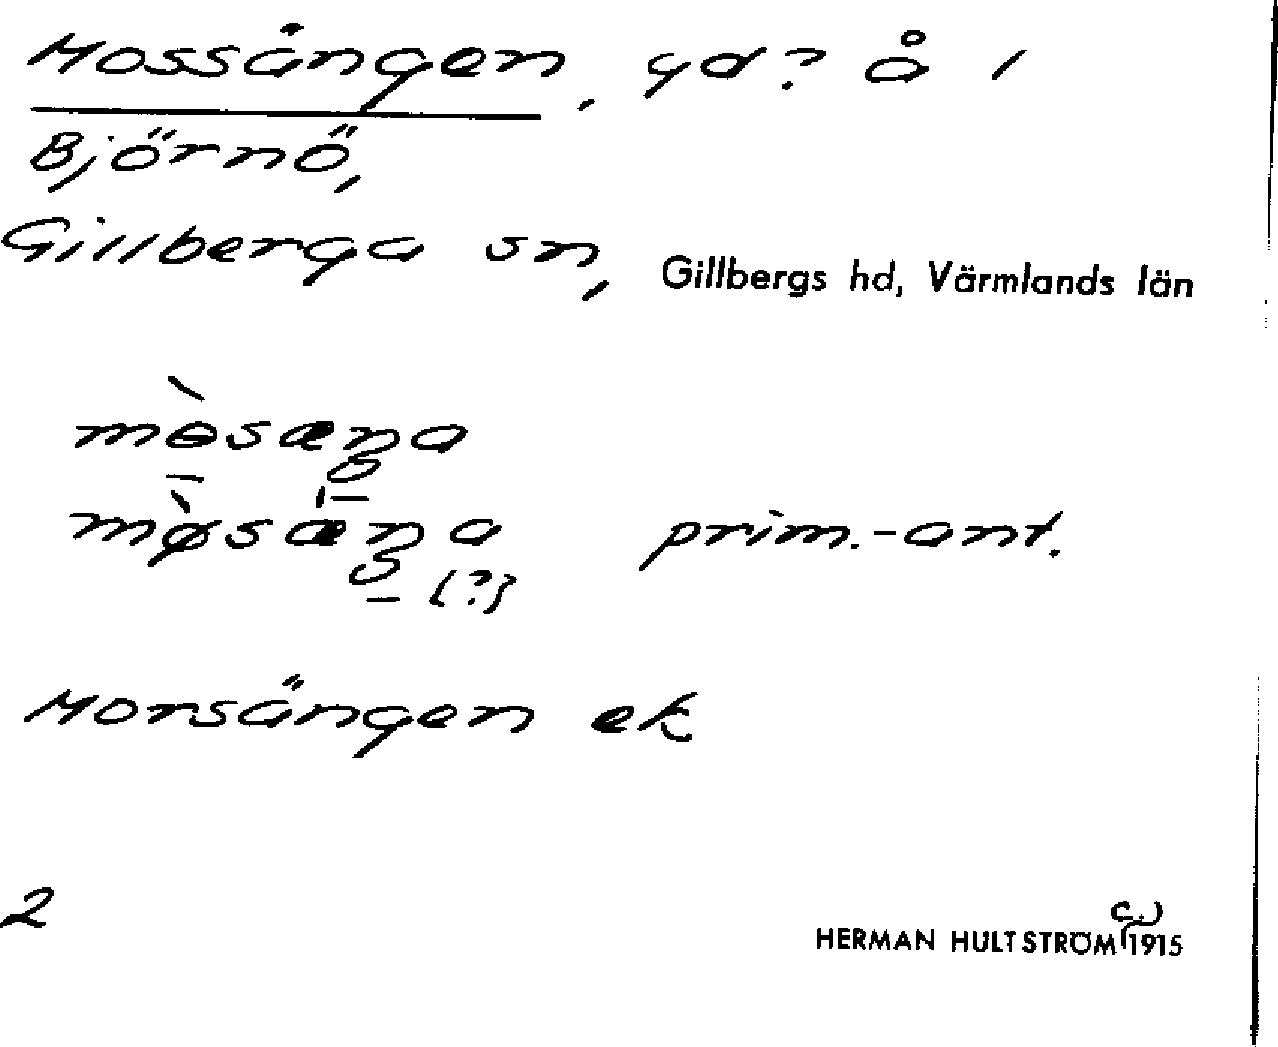 Mossängen, yd? å 1
Björnö,
Gillberga sn, Gillbergs hd, Värmlands län
mòsæŋa
mø̀sæŋa prim.-ant.
(?)
Morsängen ek
2
c.)
HERMAN HULTSTRÖM (1915